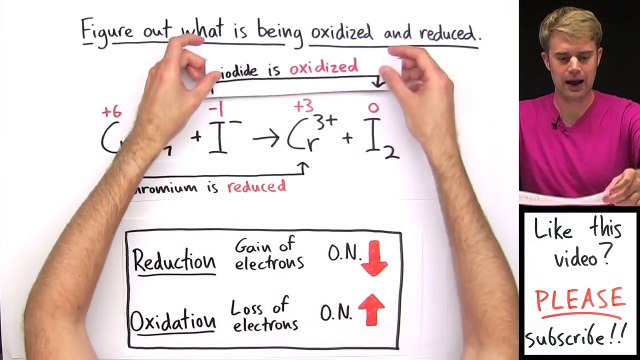 Figure out what is being oxidized and reduced.
iodide is oxidized
+6 -1 +3 0
Cr + I⁻ → Cr³⁺ + I₂
chromium is reduced
Reduction Gain of electrons O.N. ↓
Oxidation Loss of electrons O.N. ↑
Like this
video?
PLEASE
subscribe!!